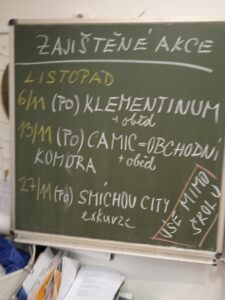 ZAJIŠTĚNÉ AKCE
LISTOPAD
6/11 (PO) KLEMENTINUM
+ oběd
13/11 (PO) CAMIC = OBCHODNÍ
KOMORA + oběd
27/11 (PO) SMÍCHOV CITY
exkurze
VŠE MIMO
ŠKOLU